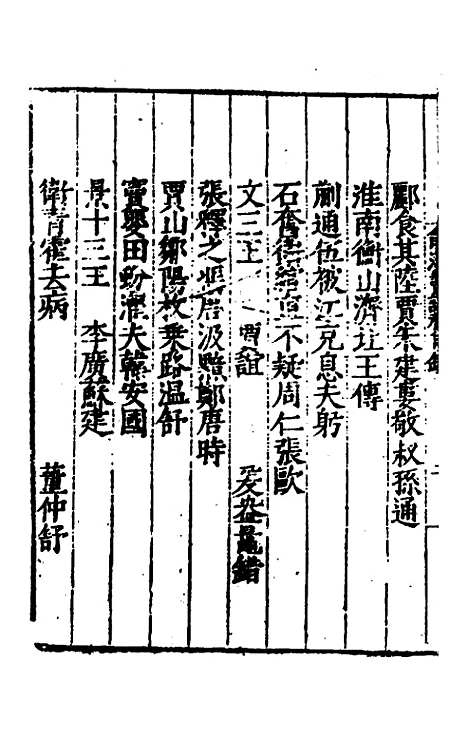 酈食其陸賈朱建婁敬叔孫通
淮南衡山濟北王傳
蒯通伍被江充息夫躬
石奮衛綰直不疑周仁張歐
文三王 賈誼 爰盎鼂錯
張釋之馮唐汲黯鄭唐時
賈山鄒陽枚乗路温舒
竇嬰田蚡灌夫韓安國
景十三王 李廣蘇建
衛青霍去病 董仲舒